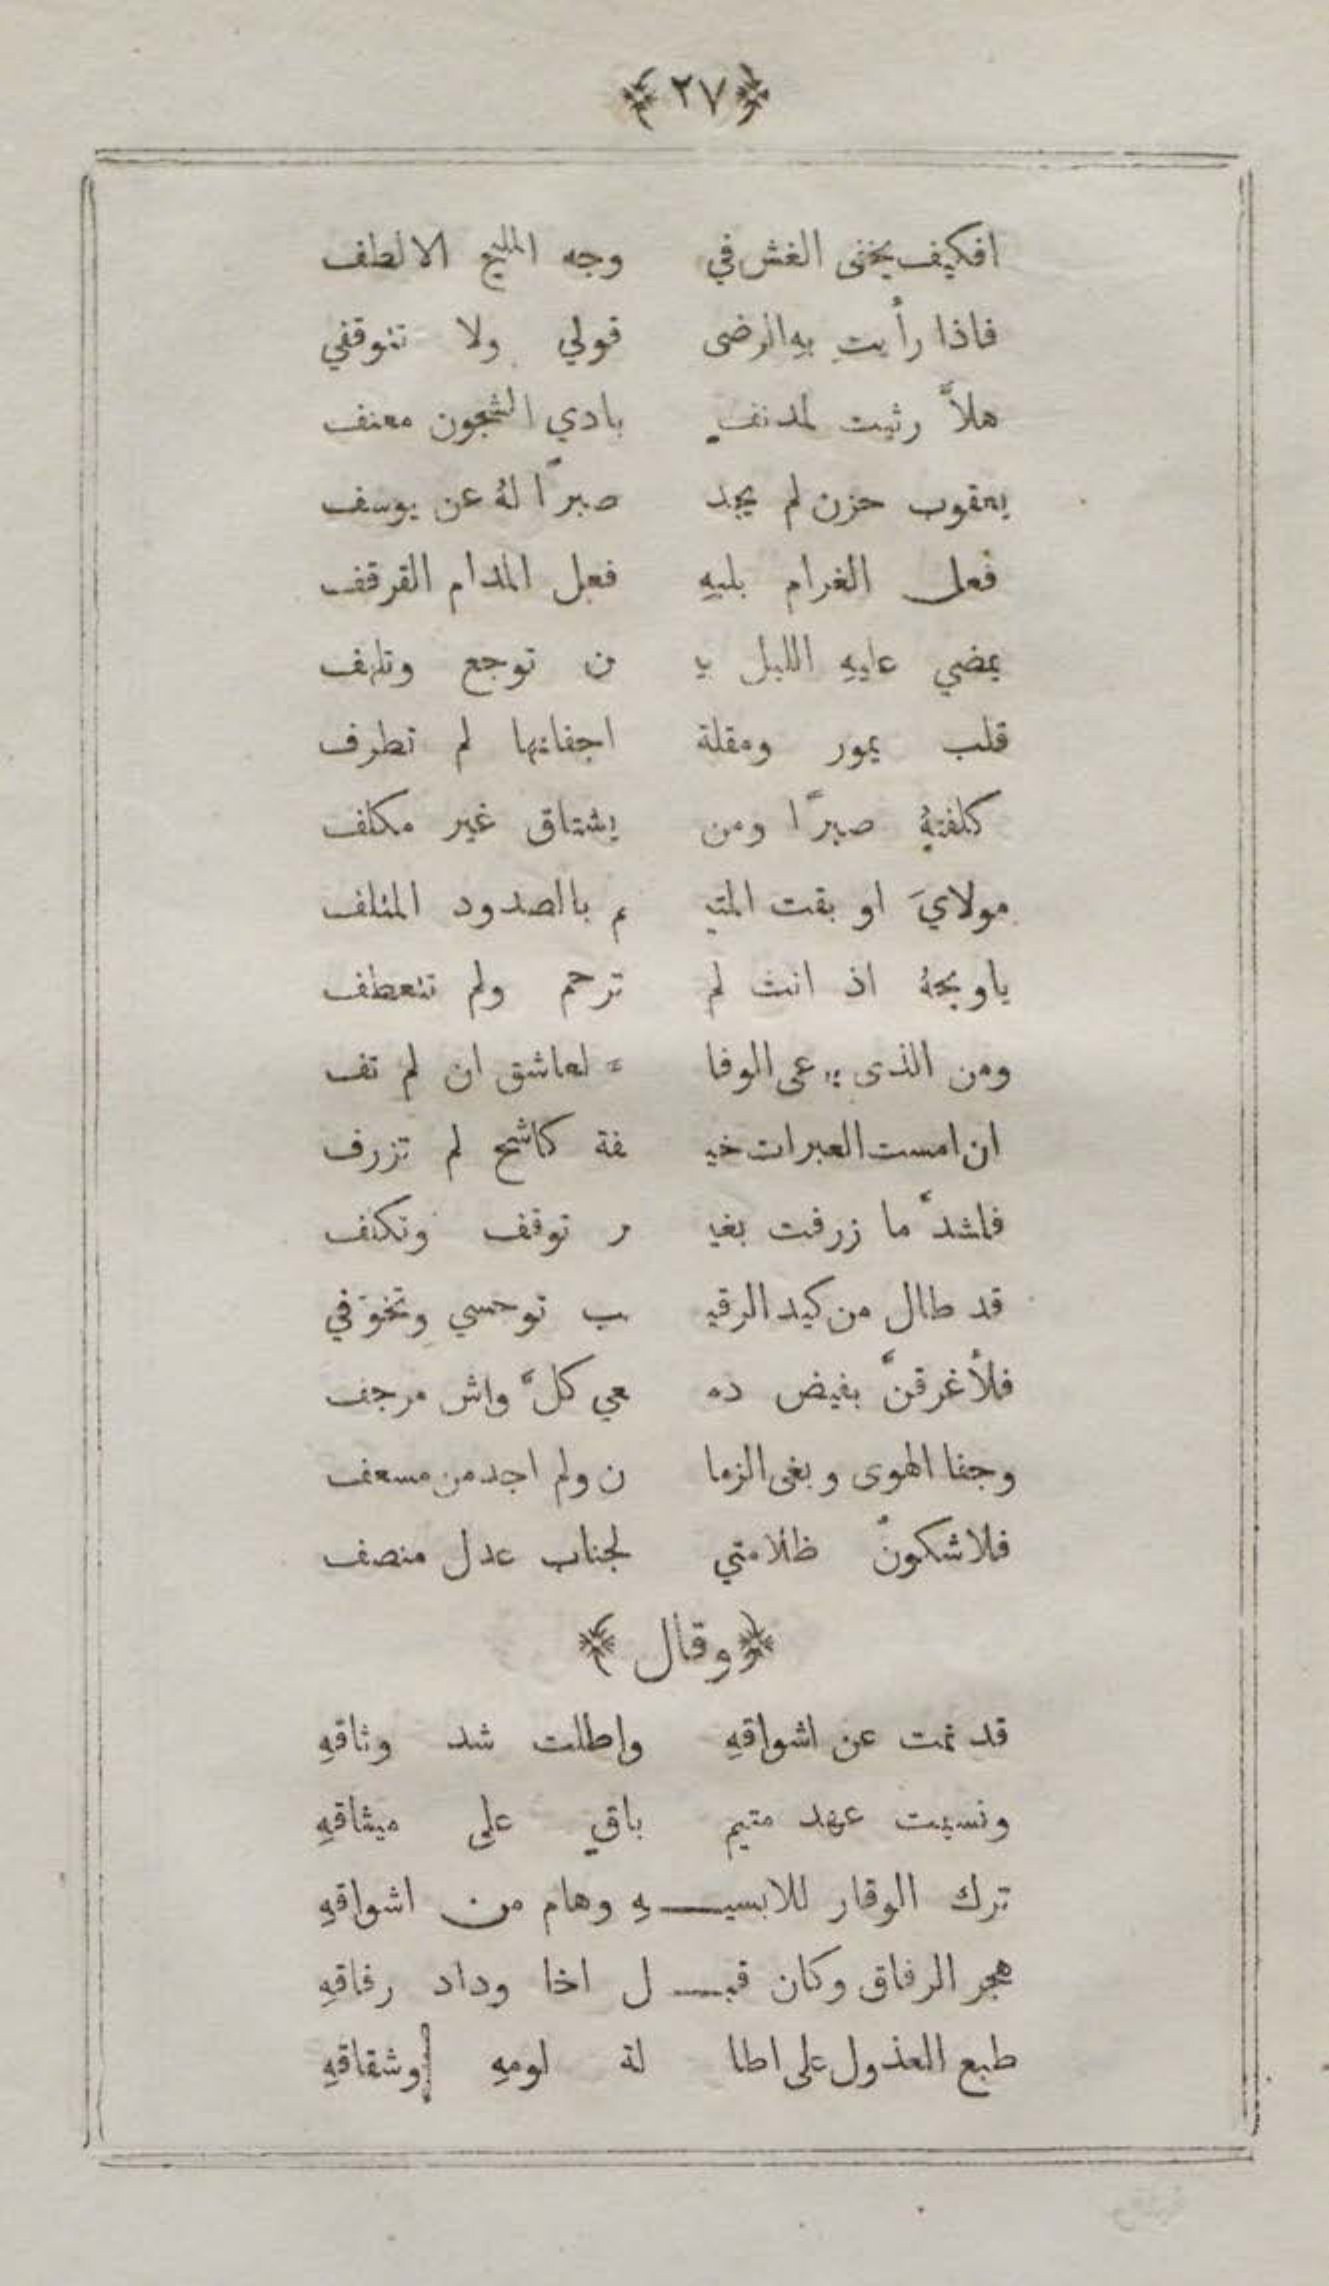 ﴿٢٧﴾
افكيف يخفى الغش في وجه المليح الالطف
فاذا رأيتِ بهِ الرضى قولي ولا تتوقفي
هلاَّ رثيت لمدنفٍ بادي الشجون معنف
يعقوب حزن لم يجد صبرًا لهُ عن يوسف
فعل الغرام بلبهِ فعل المدام القرقف
يمضي عليهِ الليل بيـ ن توجع وتلهف
قلب يمور ومقلة اجفانها لم تطرف
كلفتهُ صبرًا ومن يشتاق غير مكلف
مولايَ اوبقت المتيـ م بالصدود المتلف
ياويحهُ اذ انت لم ترحم ولم تتعطف
ومن الذي يرعى الوفا ء لعاشق ان لم تف
ان امست العبرات خيـ فة كاشح لم تزرف
فاشدّ ما زرفت بغيـ ر توقف وتكفف
قد طال من كيد الرقيـ ب توحسي وتخوّفي
فلأغرقنَّ بفيض دمـ عي كلَّ واش مرجف
وجفا الهوى وبغى الزما ن ولم اجد من مسعف
فلاشكونَّ ظلامتي لجناب عدل منصف
﴿وقال﴾
قد نمت عن اشواقهِ واطلت شد وثاقهِ
ونسيت عهد متيم باقٍ على ميثاقهِ
ترك الوقار للابسيـــهِ وهام من اشواقهِ
هجر الرفاق وكان قبـــل اخا وداد رفاقهِ
طبع العذول على اطا لة لومهِ وشقاقهِ